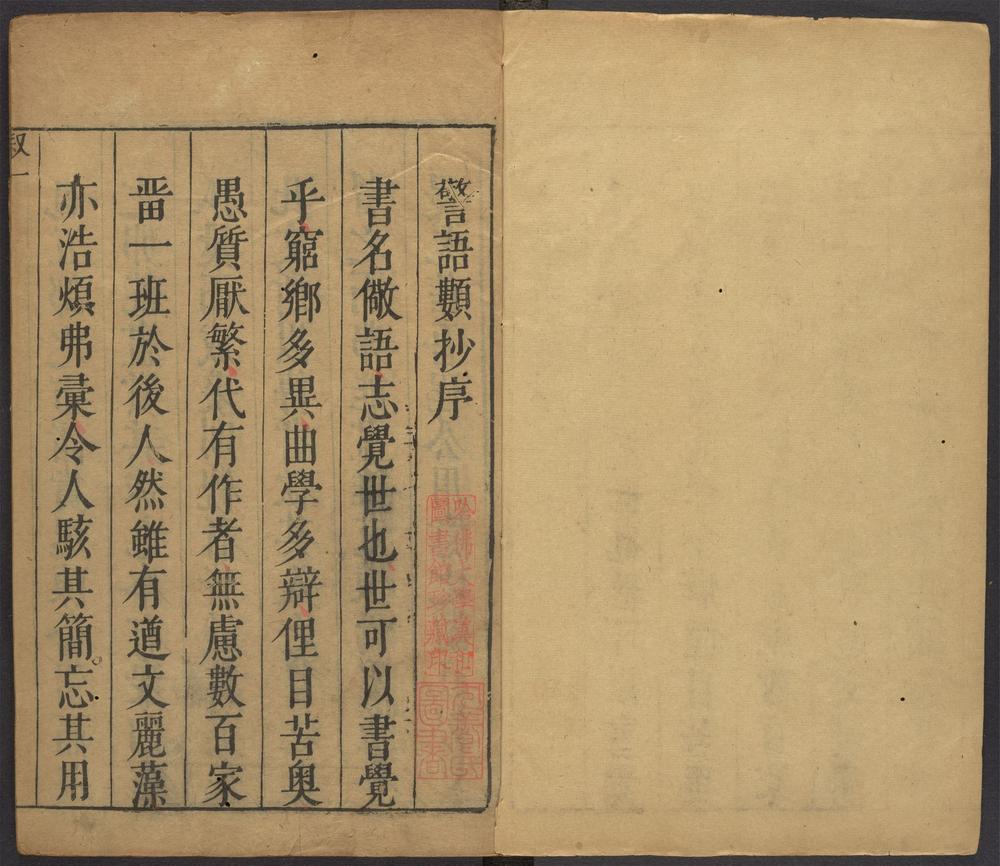 警語類抄序
書名儆語志覺世也世可以書覺
乎窮鄉多異曲學多辯俚目苦奧
愚質厭繁代有作者無慮數百家
畱一班於後人然雖有遒文麗藻
亦浩煩弗彙令人駭其簡忘其用
叙一
哈佛大學漢和
圖書館珍藏印
圖書